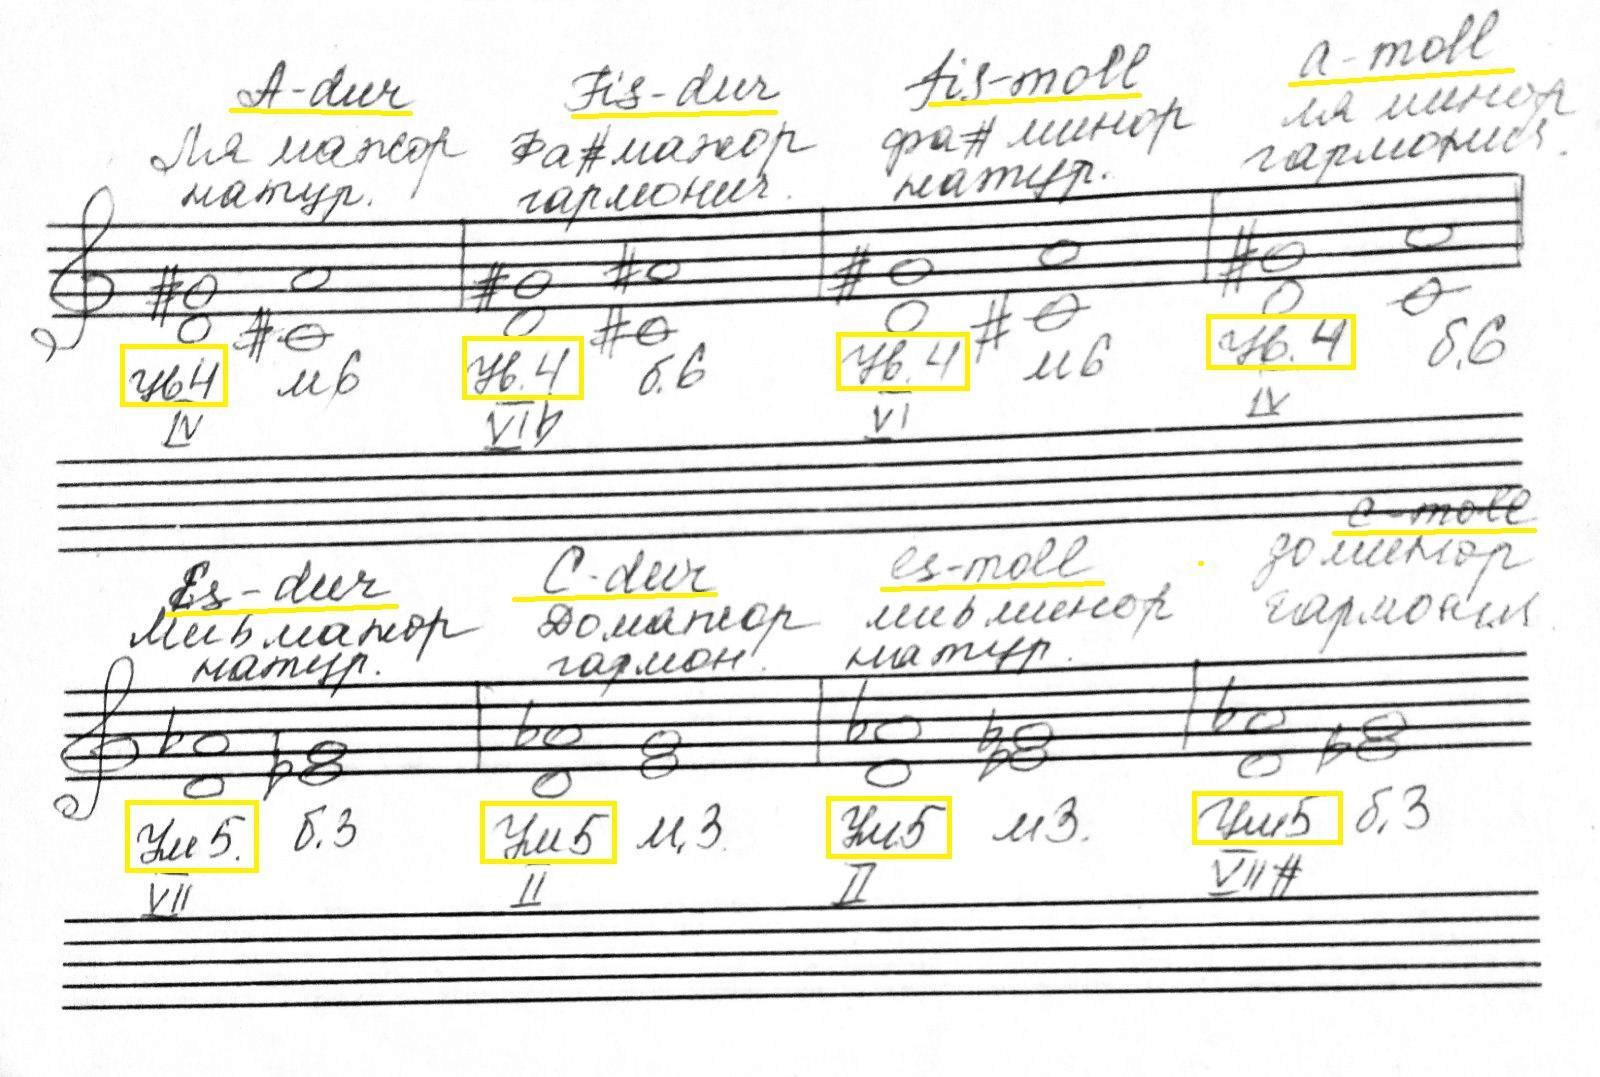 A-dur Fis-dur fis-moll a-moll
Ля мажор Фа# мажор фа# минор ля минор
натур. гармонич. натур. гармонич.
Ув4 м6 Ув.4 б.6 Ув.4 м6 Ув.4 б.6
IV VIb VI IV
Es-dur C-dur es-moll c-moll
Миb мажор До мажор миb минор до минор
натур. гармон. натур. гармонич
Ум5. б.3 Ум5 м.3 Ум5 м3. Ум5 б.3
VII II II VII#